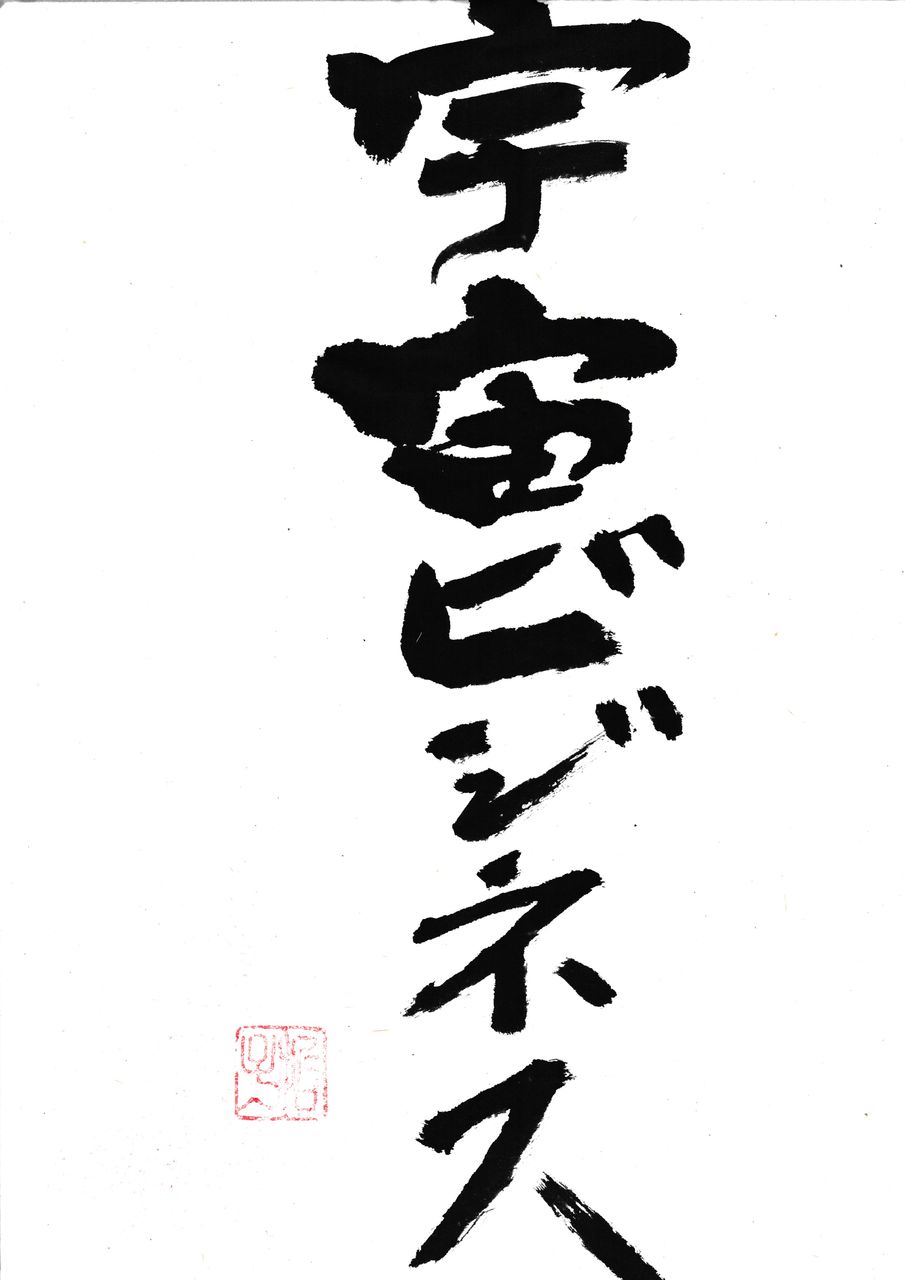 宇宙ビジネス